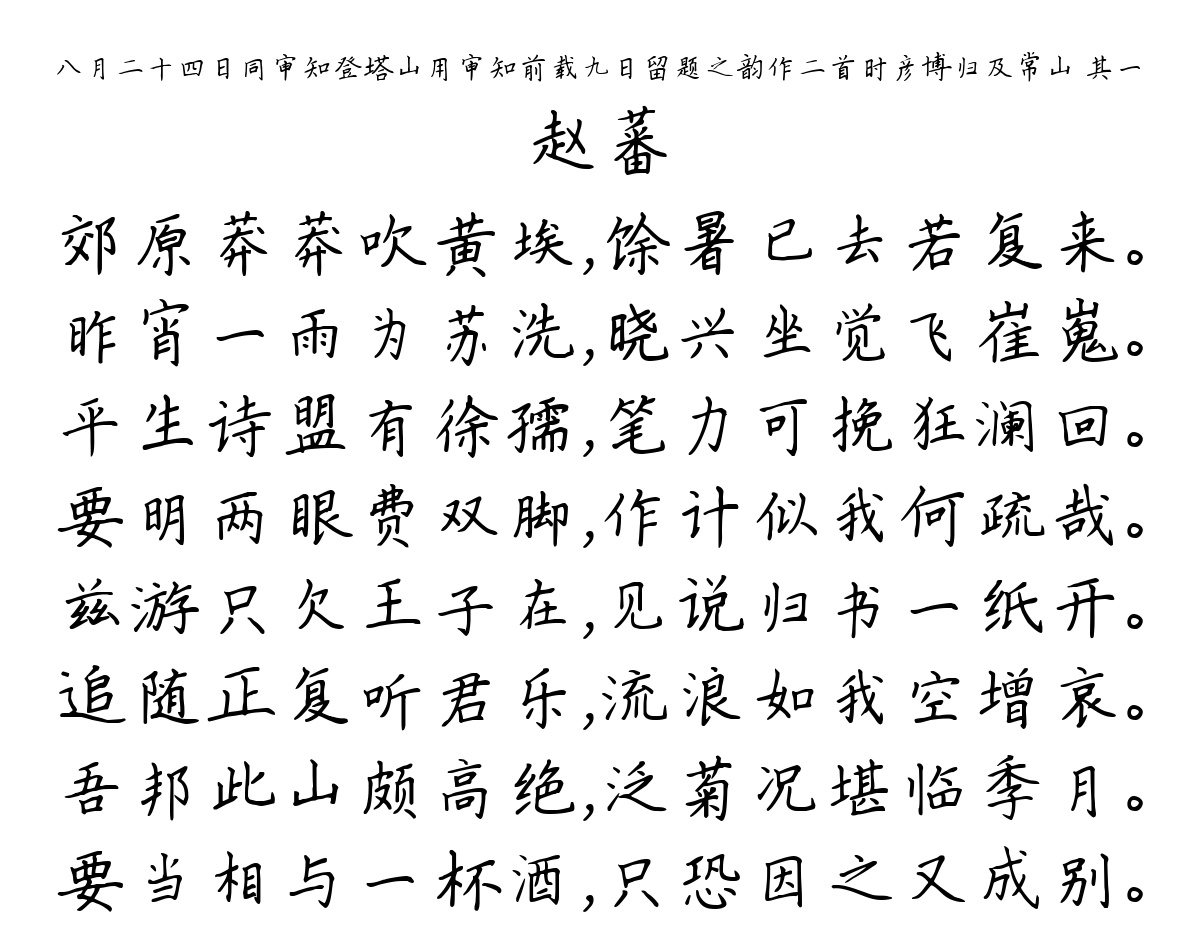 八月二十四日同审知登塔山用审知前载九日留题之韵作二首时彦博归及常山 其一
赵蕃
郊原莽莽吹黄埃,馀暑已去若复来。
昨宵一雨为苏洗,晓兴坐觉飞崔嵬。
平生诗盟有徐孺,笔力可挽狂澜回。
要明两眼费双脚,作计似我何疏哉。
兹游只欠王子在,见说归书一纸开。
追随正复听君乐,流浪如我空增哀。
吾邦此山颇高绝,泛菊况堪临季月。
要当相与一杯酒,只恐因之又成别。